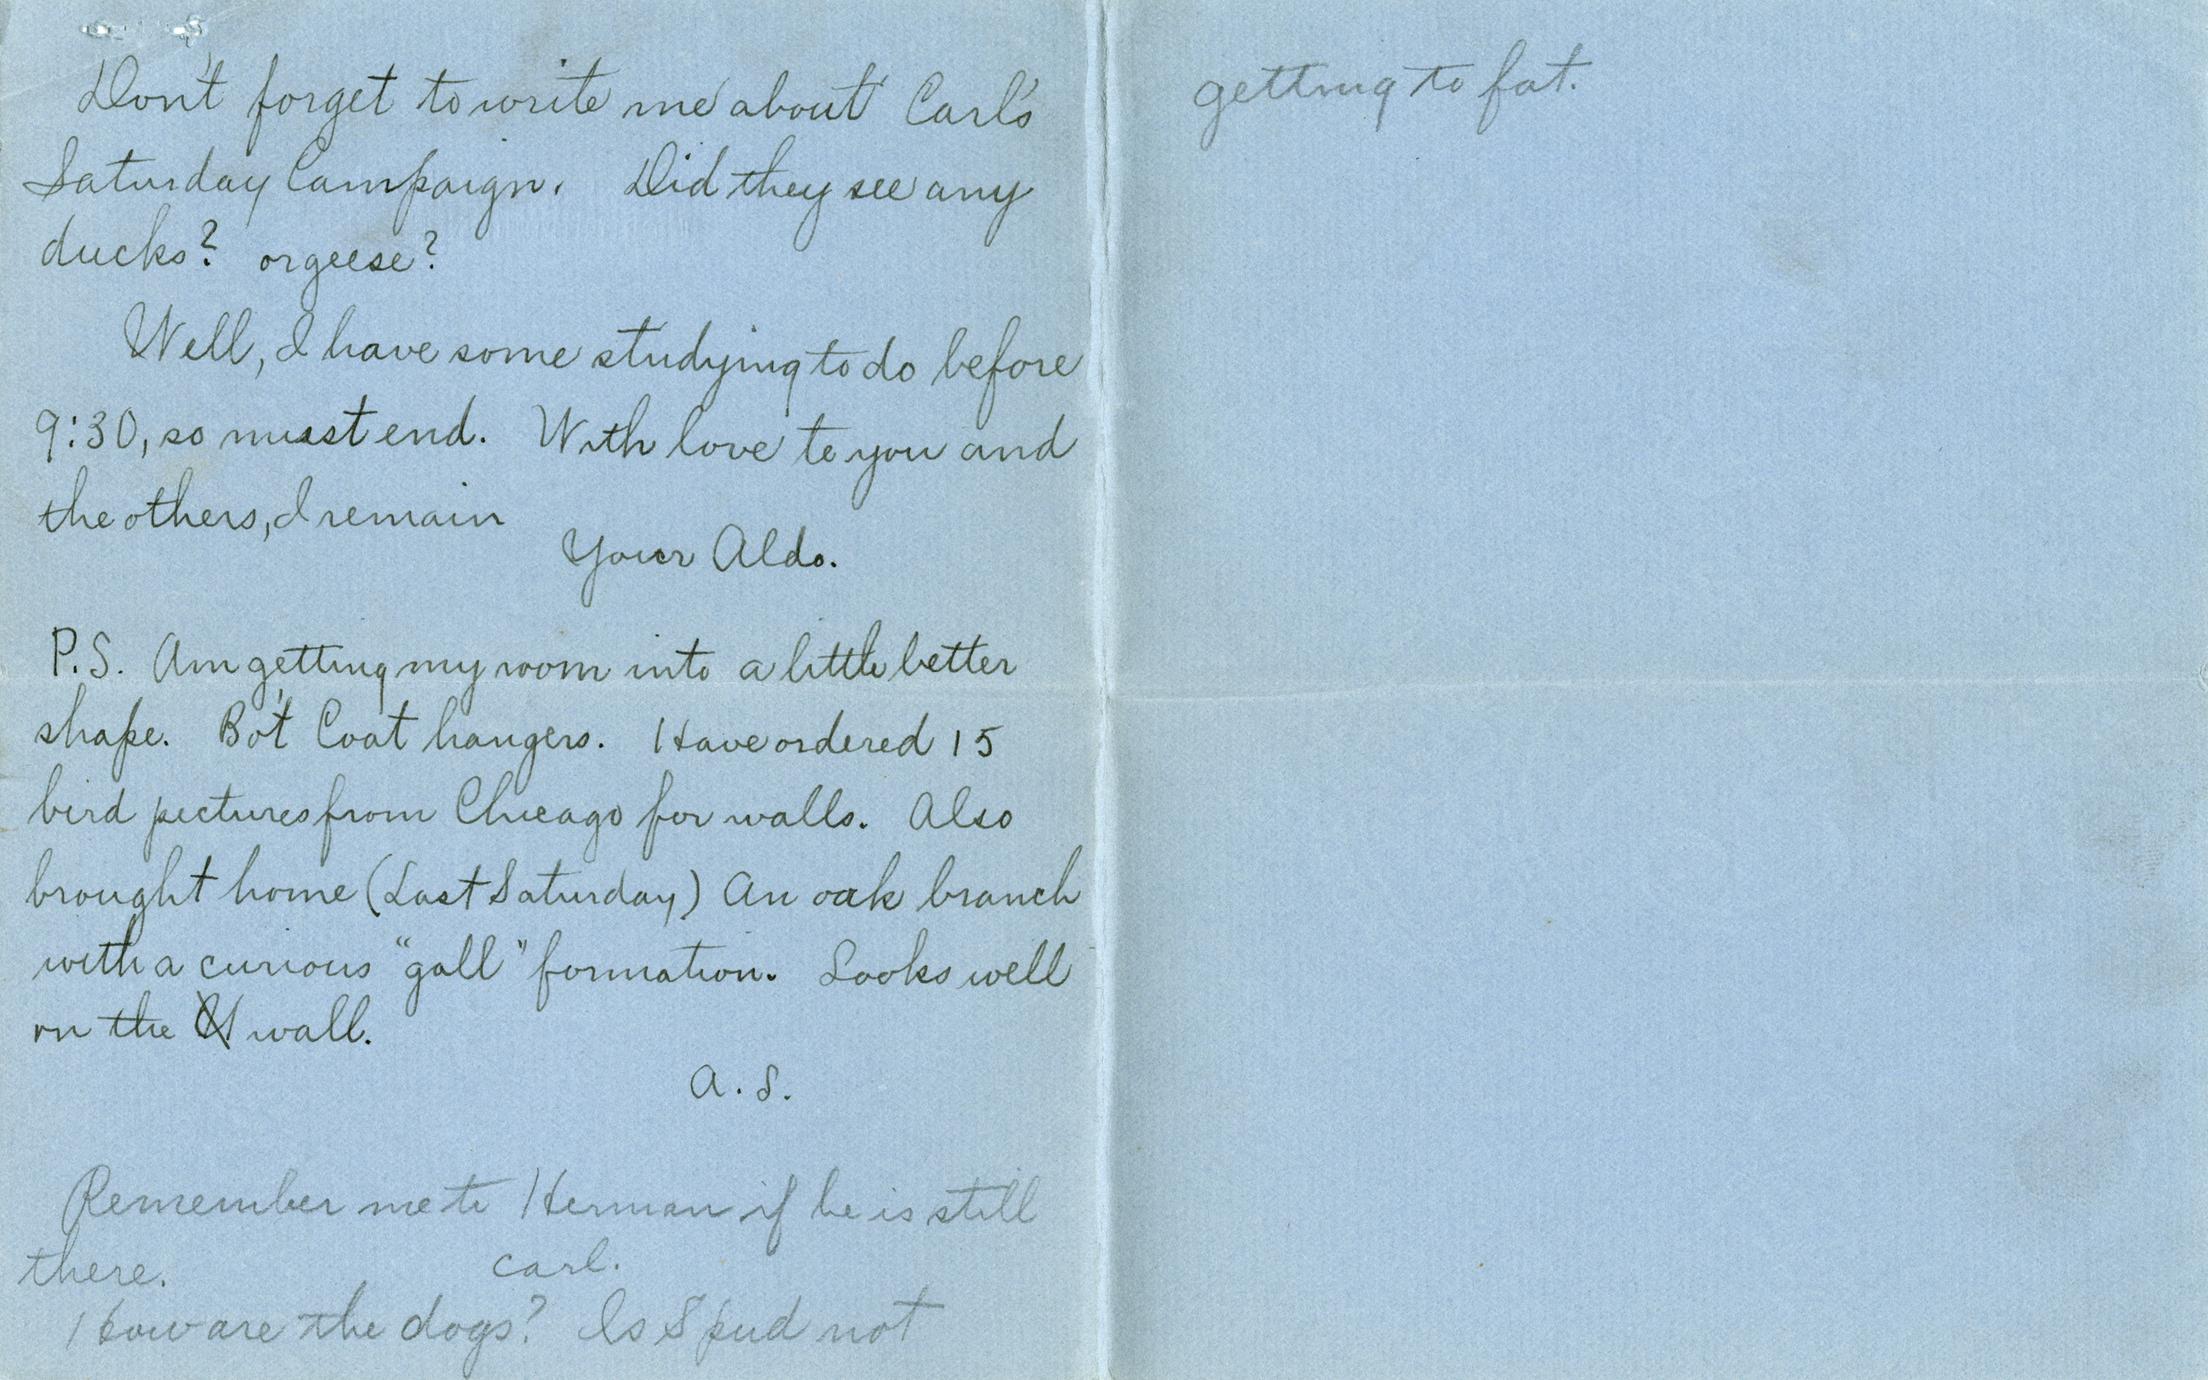 Don't forget to write me about Carl's
Saturday Campaign. Did they see any
ducks? or geese?
Well, I have some studying to do before
9:30, so must end. With love to you and
the others, I remain
Your Aldo.
P.S. Am getting my room into a little better
shape. Bo't Coat hangers. Have ordered 15
bird pictures from Chicago for walls. Also
brought home (Last Saturday) An oak branch
with a curious "gall" formation. Looks well
on the wall.
A. S.
Remember me to Herman if he is still
there. Carl.
How are the dogs? Is Spud not
getting to fat.